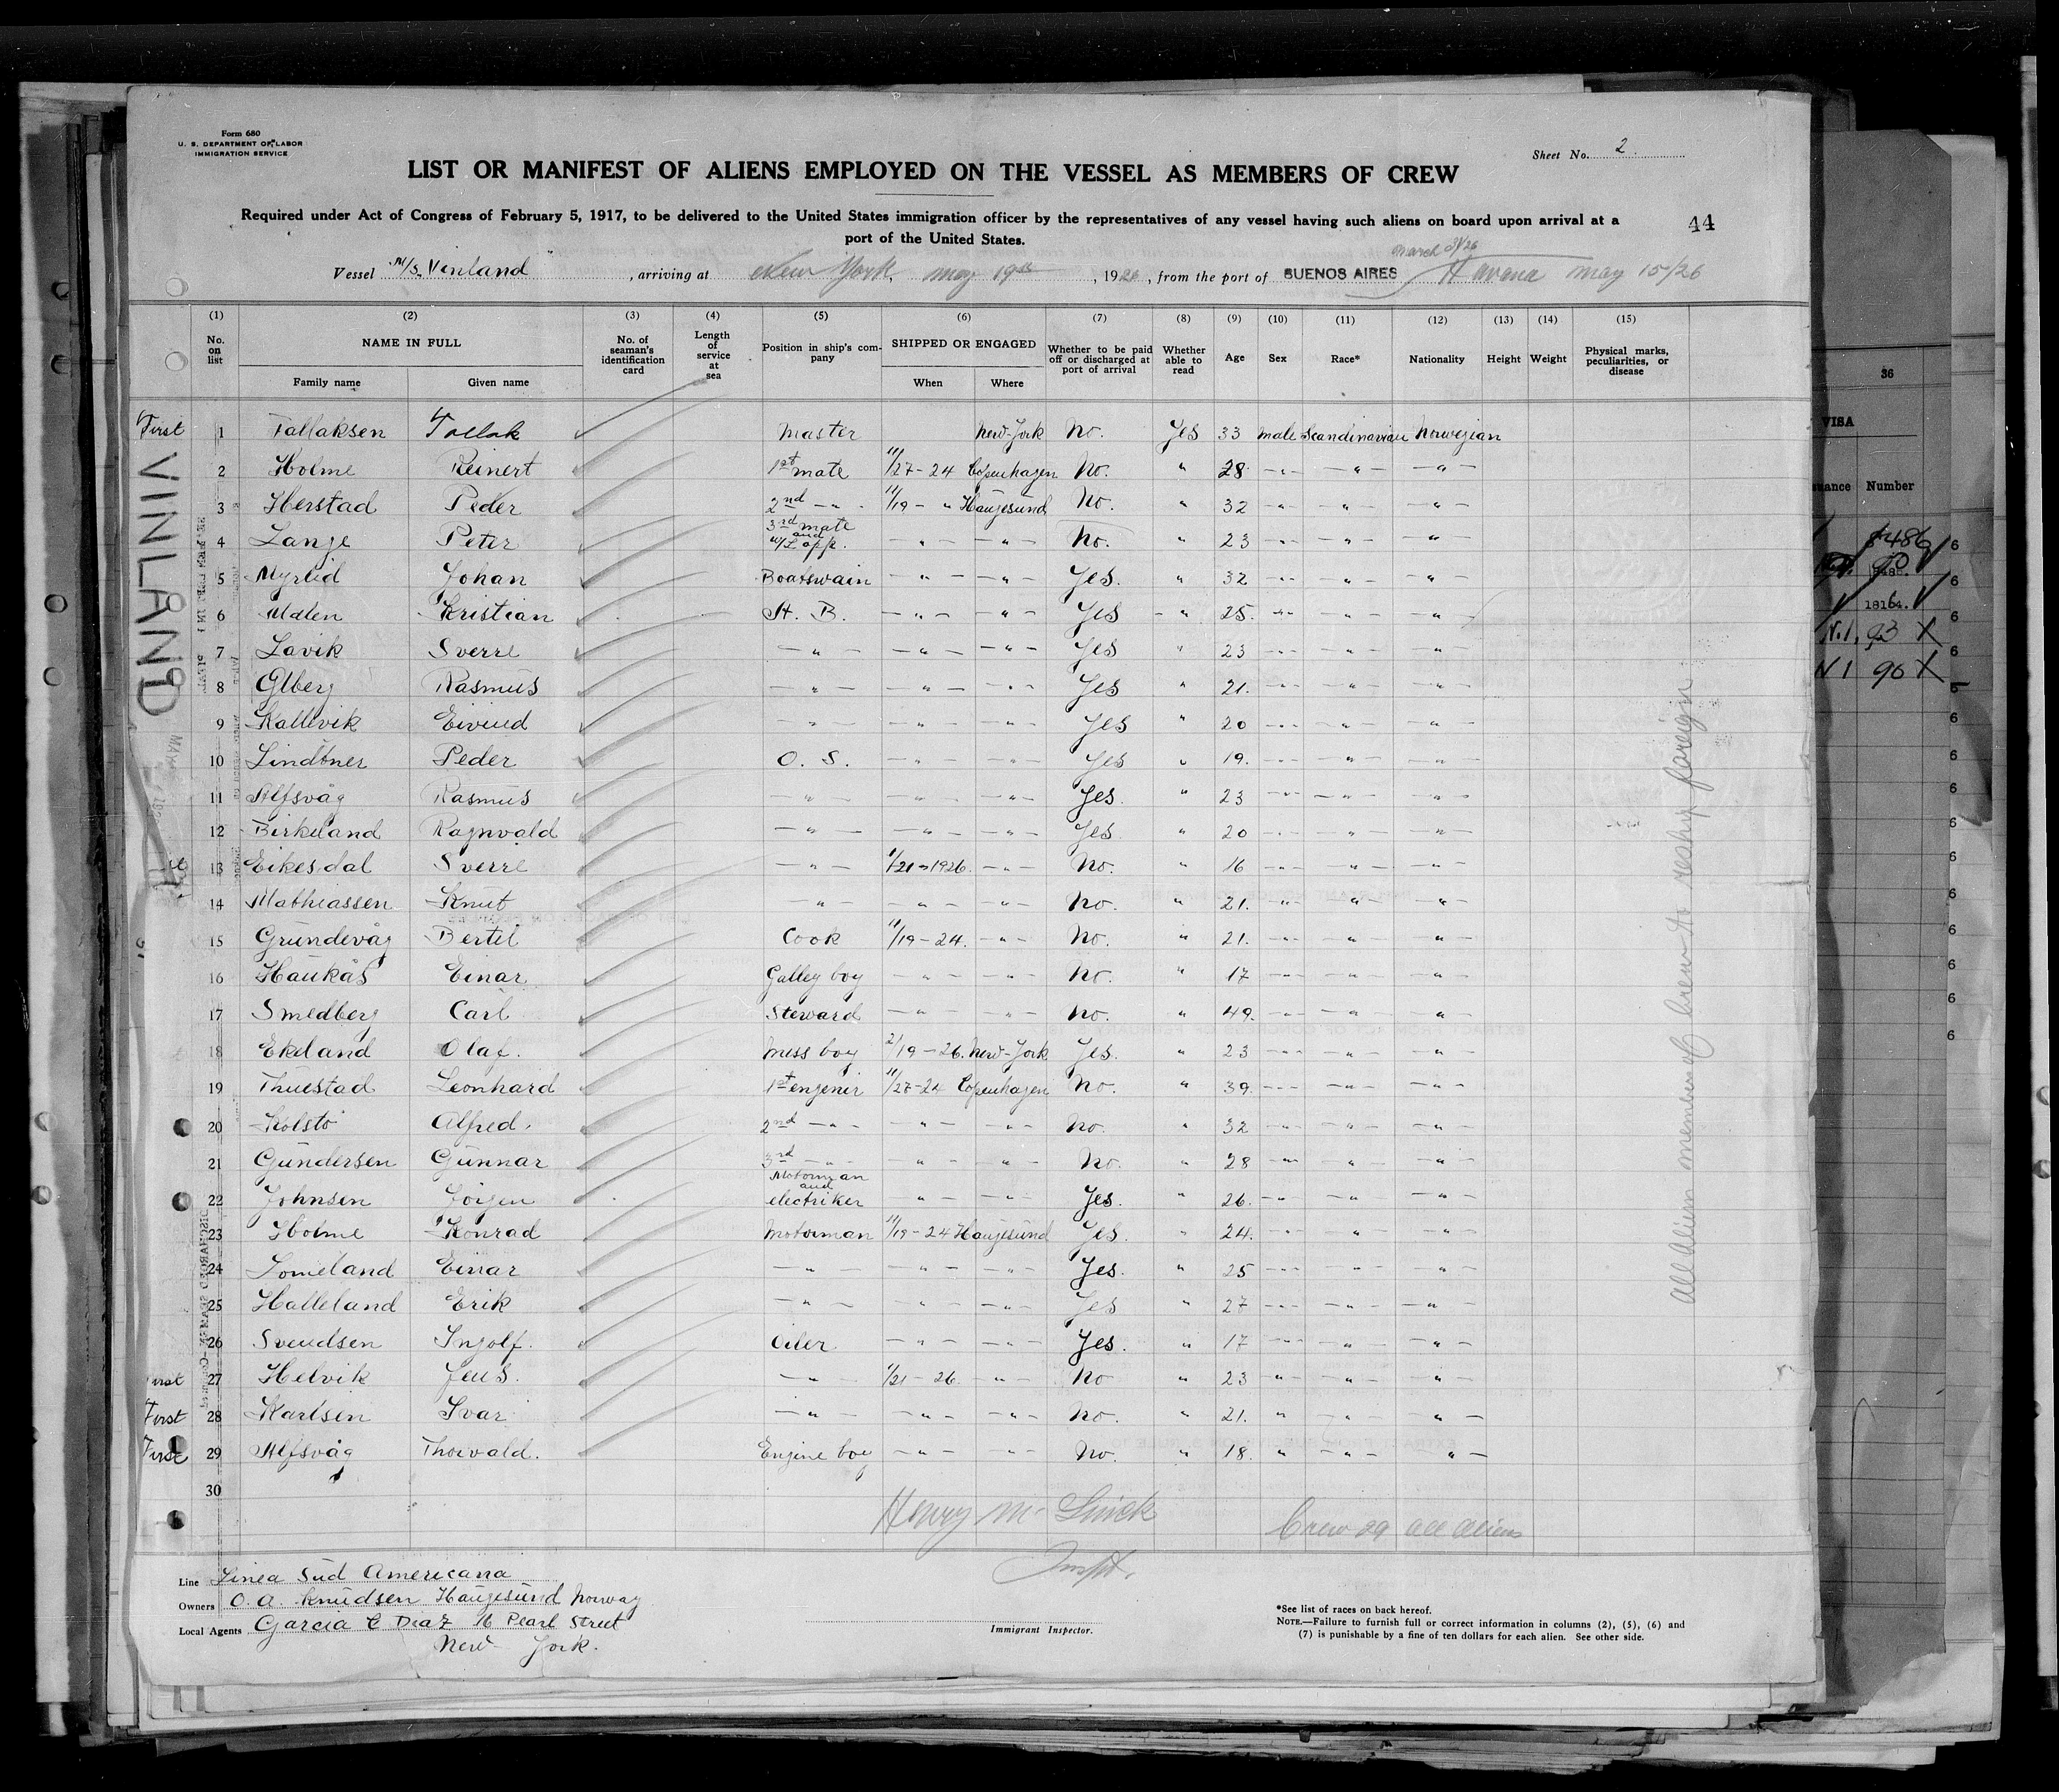 Form 680
U. S. DEPARTMENT OF LABOR
IMMIGRATION SERVICE
Sheet No. 2
LIST OR MANIFEST OF ALIENS EMPLOYED ON THE VESSEL AS MEMBERS OF CREW
Required under Act of Congress of February 5, 1917, to be delivered to the United States immigration officer by the representatives of any vessel having such aliens on board upon arrival at a
port of the United States.
44
March 31/26
Vessel M/S. Vinland, arriving at New York, May 19th, 1926, from the port of BUENOS AIRES Havana May 15/26
(1) (2) (3) (4) (5) (6) (7) (8) (9) (10) (11) (12) (13) (14) (15)
No. on list NAME IN FULL No. of seaman's identification card Length of service at sea Position in ship's company SHIPPED OR ENGAGED Whether to be paid off or discharged at port of arrival Whether able to read Age Sex Race* Nationality Height Weight Physical marks, peculiarities, or disease
Family name Given name When Where
First 1 Tallaksen Tallak Master New-York No. Yes 33 Male Scandinavian Norwegian
2 Holme Reinert 1st mate 11/27-24 Copenhagen No. " 28 -"- -"- -"-
3 Herstad Peder 2nd -"- 11/19- " Haugesund No. " 32 -"- -"- -"-
4 Lange Peter 3rd mate and W/L opp. -"- -"- No. " 23 -"- -"- -"-
5 Myrlid Johan Boatswain -"- -"- Yes. " 32 -"- -"- -"-
6 Malen Kristian A. B. -"- -"- Yes " 25. -"- -"- -"-
7 Lavik Sverre -"- -"- -"- Yes " 23 -"- -"- -"-
8 Glberg Rasmus -"- -"- -"- Yes " 21. -"- -"- -"-
9 Kallevik Eivind -"- -"- -"- Yes " 20 -"- -"- -"-
10 Lindtner Peder O. S. -"- -"- Yes " 19. -"- -"- -"-
11 Alfsvåg Rasmus -"- -"- -"- Yes. " 23 -"- -"- -"-
12 Birkeland Ragnvald -"- -"- -"- Yes. " 20 -"- -"- -"-
13 Eikesdal Sverre -"- 1/21-1926. -"- No. " 16 -"- -"- -"-
14 Mathiassen Knut -"- -"- -"- No. " 21. -"- -"- -"-
15 Grundevåg Bertel Cook 11/19-24. -"- No. " 21. -"- -"- -"-
16 Haukås Einar Galley boy -"- -"- No. " 17 -"- -"- -"-
17 Smedberg Carl Steward -"- -"- No. " 49. -"- -"- -"-
18 Ekeland Olaf. Mess boy 2/19-26. New-York Yes. " 23 -"- -"- -"-
19 Thuestad Leonhard 1st engenir 11/27-24 Copenhagen No. " 39. -"- -"- -"-
20 Kolstø Alfred. 2nd -"- -"- -"- No. " 32 -"- -"- -"-
21 Gundersen Gunnar 3rd -"- -"- -"- No. " 28 -"- -"- -"-
22 Johnsen Jörgen Motorman and electriker -"- -"- Yes. " 26. -"- -"- -"-
23 Holme Konrad Motorman 11/19-24 Haugesund Yes. " 24. -"- -"- -"-
24 Someland Einar -"- -"- -"- Yes. " 25 -"- -"- -"-
25 Halleland Erik -"- -"- -"- Yes " 27 -"- -"- -"-
26 Svendsen Ingolf. Oiler -"- -"- Yes. " 17 -"- -"- -"-
First 27 Helvik Jens. -"- 1/21-26. -"- No " 23 -"- -"- -"-
First 28 Karlsen Ivar -"- -"- -"- No. " 21. " -"- -"-
First 29 Alfsvåg Thorvald. Engine boy -"- -"- No. " 18. " -"- -"-
30
VINLAND
All Alien members of Crew to reship foreign
Henry M.
Crew 29 all aliens
Inspt.
Line Linea Sud Americana
Owners O. A. Knudsen Haugesund Norway
Local Agents Garcia & Diaz 16 Pearl Street
New York.
Immigrant Inspector.
*See list of races on back hereof.
NOTE.—Failure to furnish full or correct information in columns (2), (5), (6) and
(7) is punishable by a fine of ten dollars for each alien. See other side.
36
VISA
Number